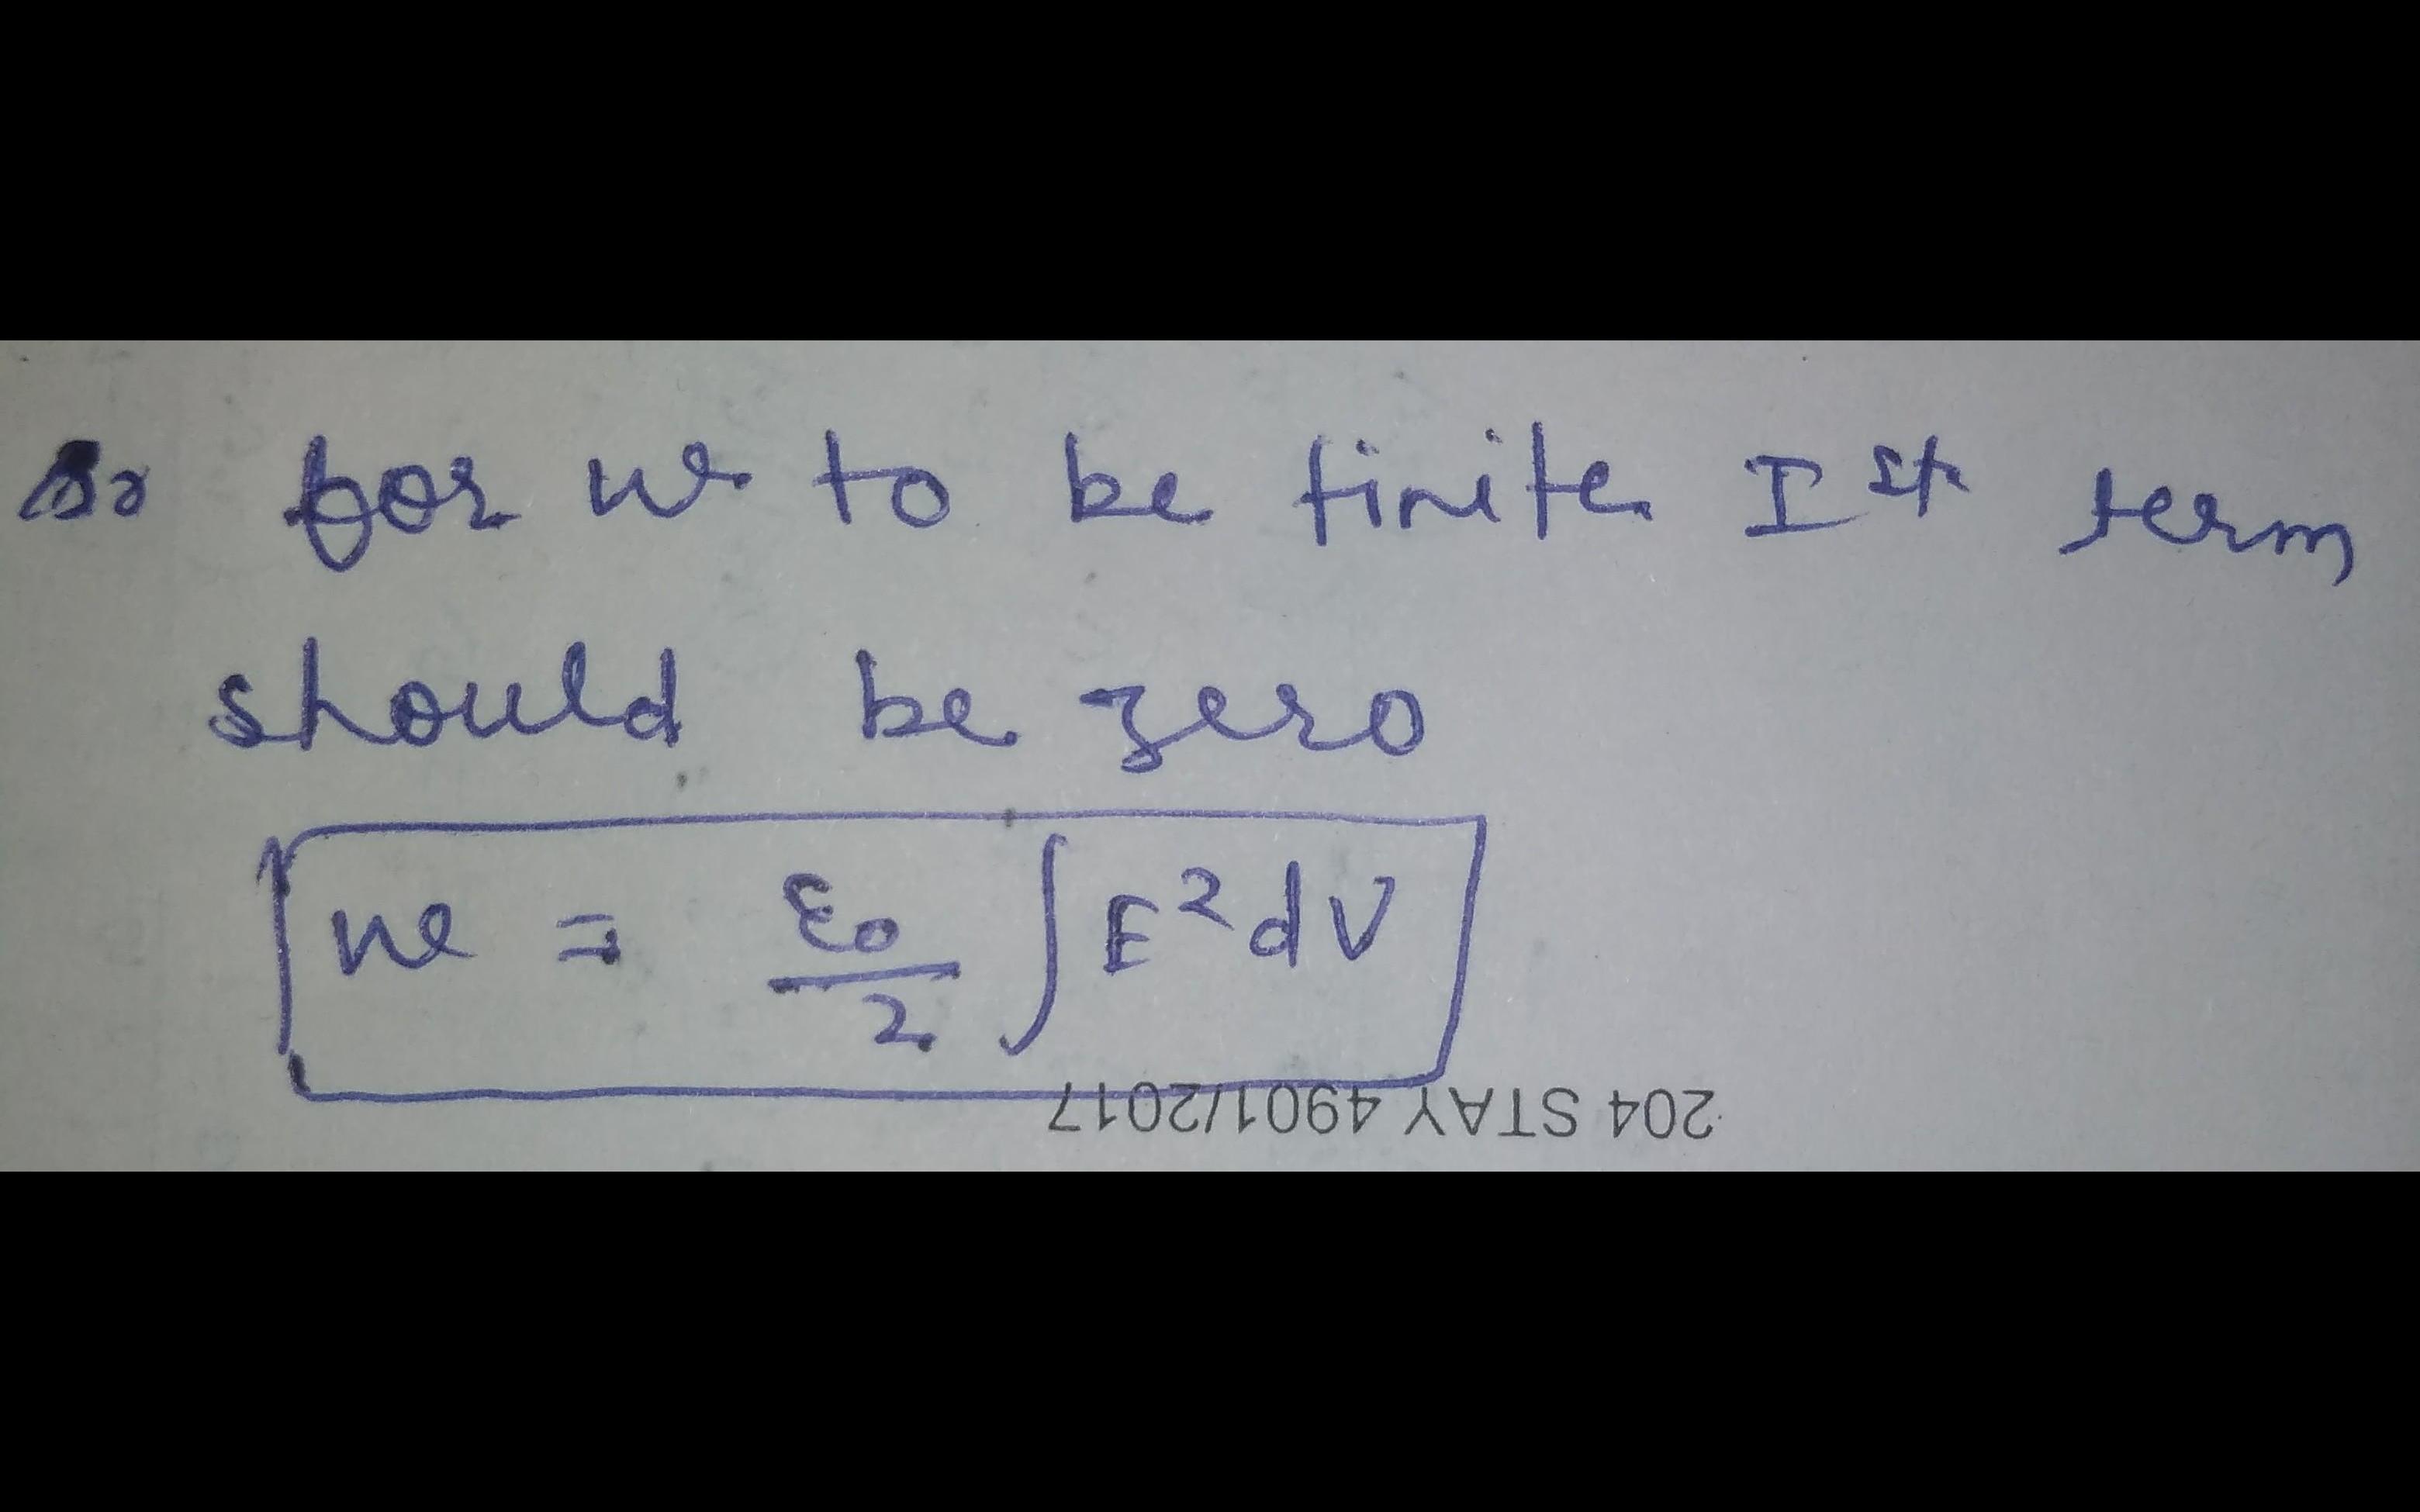 So for w to be finite Ist term
should be zero
We = ε₀/2 ∫E²dV
204 STAY 4901/2017